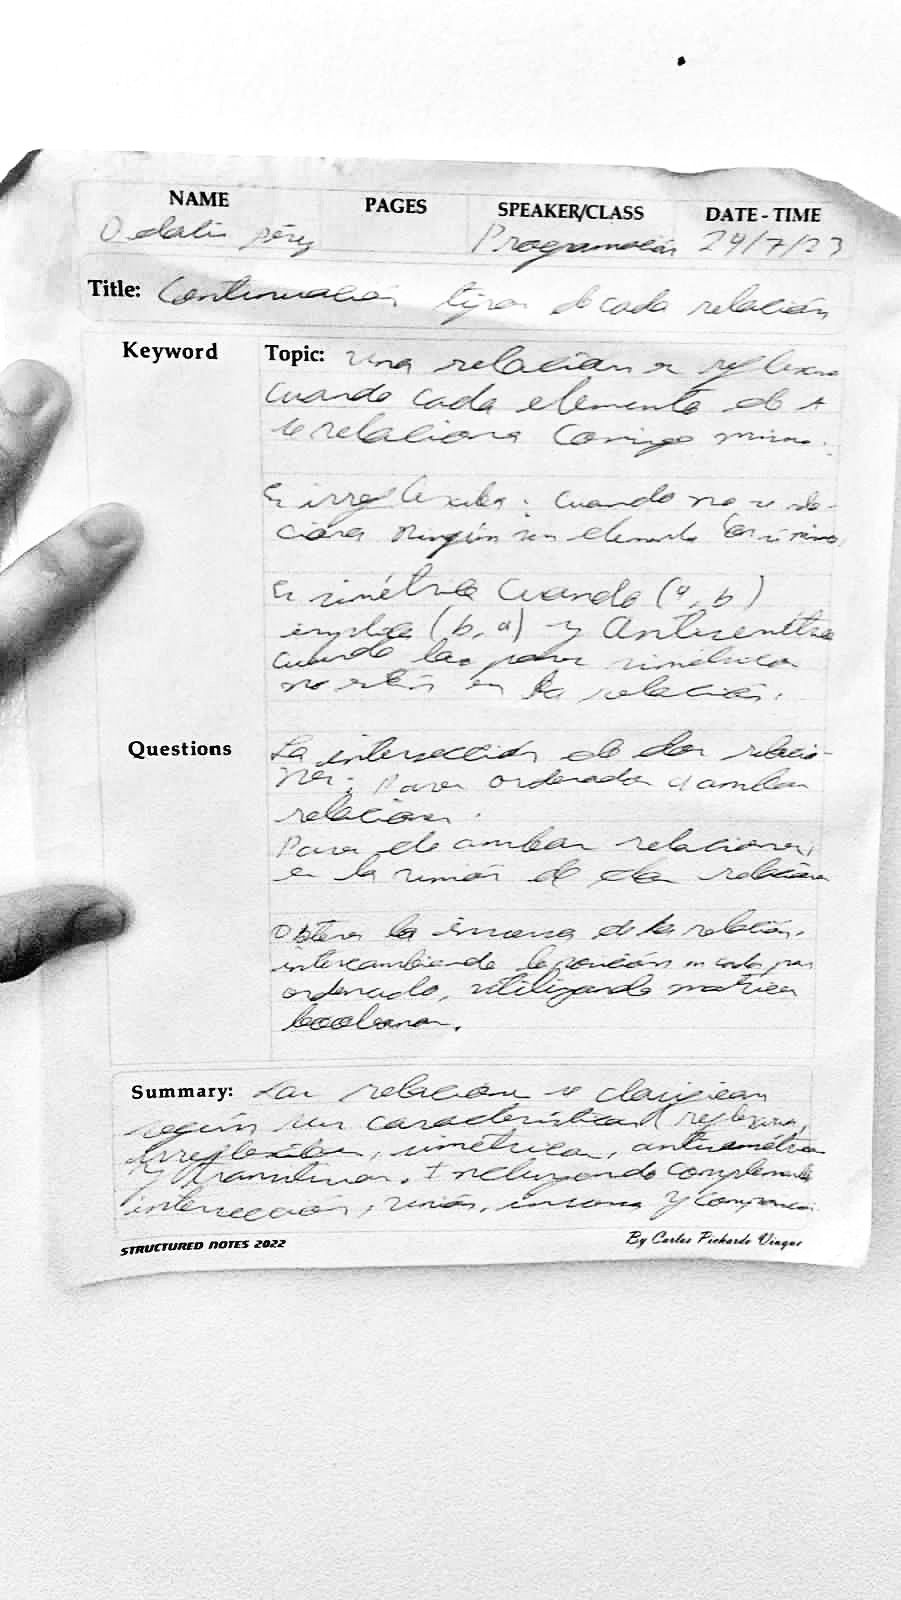 NAME PAGES SPEAKER/CLASS DATE - TIME
Odalis pérez Programación 24/7/23
Title: Continuación tipos de cada relación
Keyword Topic: una relación es reflexiva
cuando cada elemento de A
se relaciona consigo mismo.
Es irreflexiva: cuando no se rela-
ciona ningún elemento
Es simétrica cuando (a, b)
implica (b, a) y Antisimétrica
cuando los pares simétricos
no están en la relación.
Questions La intersección de dos relacio-
nes: Pares ordenados a ambas
relaciones.
Pares de ambas relaciones,
en la unión de dos relaciones
Obtener la inversa de la relación,
intercambiando la posición en cada par
ordenado, utilizando matrices
booleanas.
Summary: Las relaciones se clasifican
según sus características reflexivas,
irreflexivas, simétricas, antisimétricas
y transitivas. Incluyendo complemento
intersección, unión, inversa y composición
STRUCTURED NOTES 2022 By Carlos Pichardo Vinque